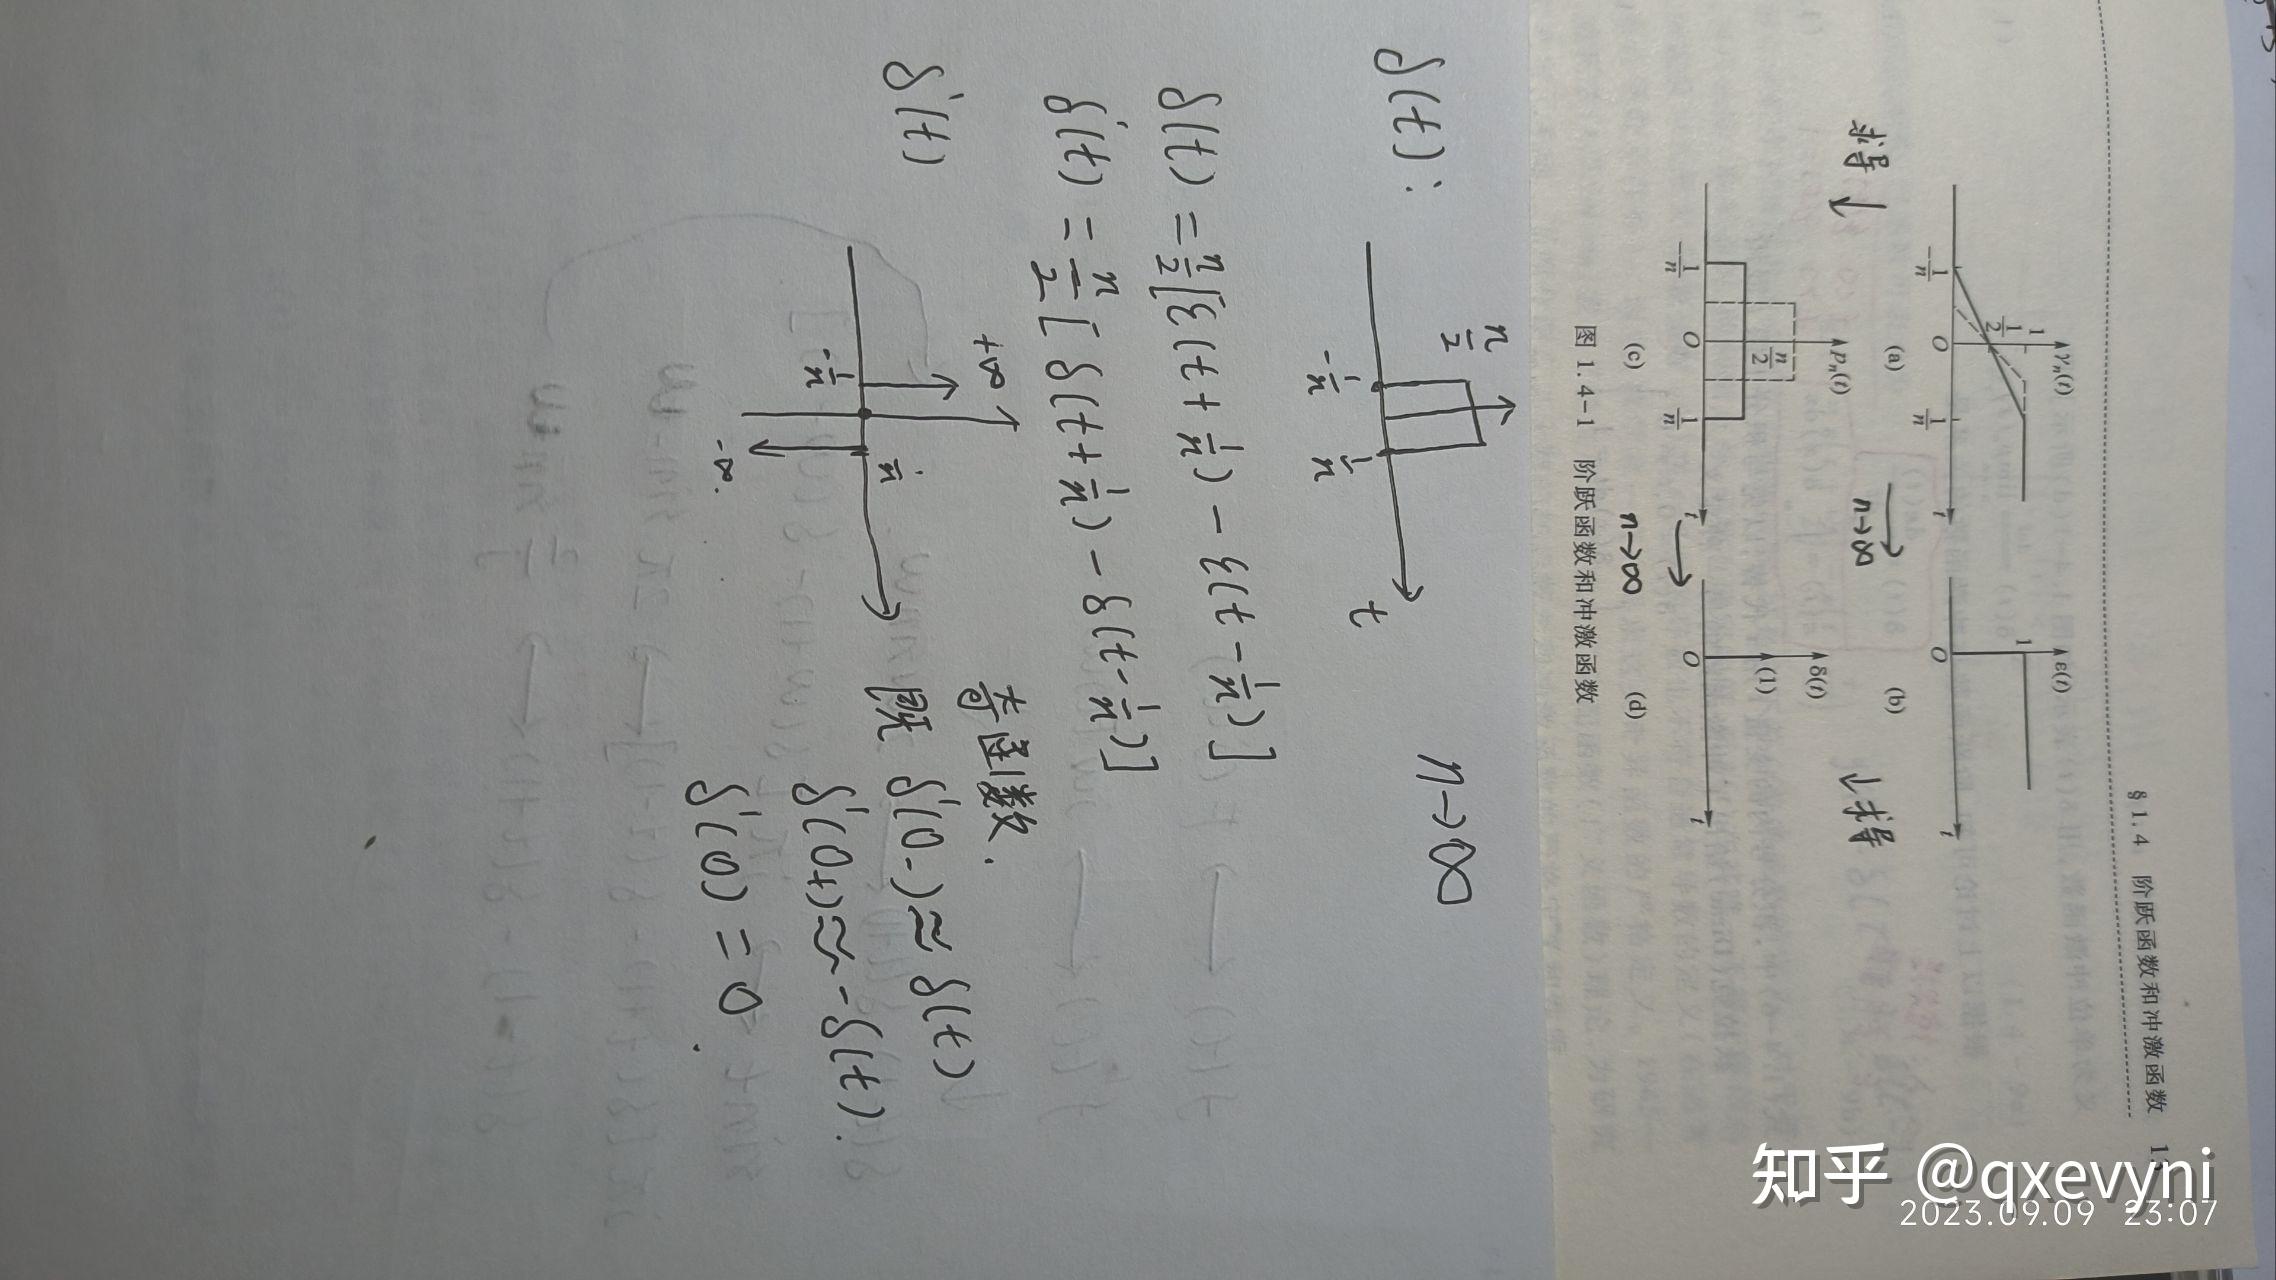 §1.4 阶跃函数和冲激函数
γₙ(t)
1
1/2
-1/n
O
1/n
t
(a)
n→∞
ε(t)
1
O
t
(b)
求导↓
↓求导
pₙ(t)
n/2
-1/n
O
1/n
t
(c)
n→∞
δ(t)
(1)
O
t
(d)
图 1.4-1 阶跃函数和冲激函数
δ(t):
n/2
-1/n
1/n
t
n→∞
δ(t) = n/2[ε(t+1/n) - ε(t-1/n)]
δ'(t) = n/2[δ(t+1/n) - δ(t-1/n)]
δ'(t)
+∞
-1/n
1/n
-∞.
奇函数.
既 δ'(0-) ≈ δ(t)
δ'(0+) ≈ -δ(t).
δ'(0) = 0.
知乎 @qxevyni
2023.09.09 23:07